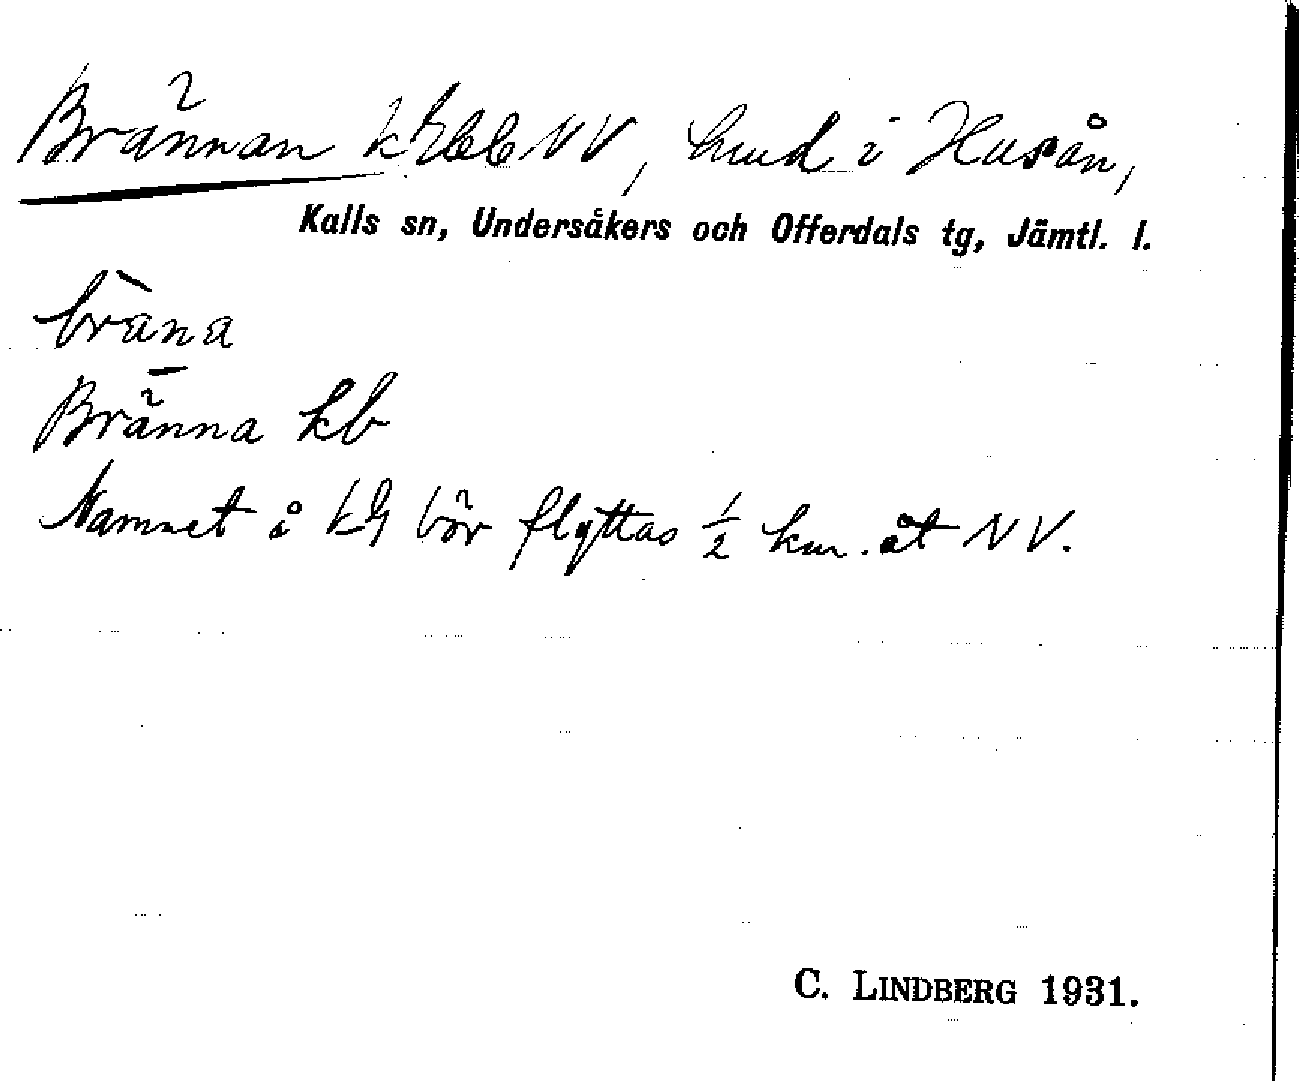 Brännan kG 66 NV, hmd i Husån,
Kalls sn, Undersåkers och Offerdals tg, Jämtl. l.
bräna
Bränna kb
Namnet å kG bör flyttas 1/2 km. åt NV.
C. LINDBERG 1931.